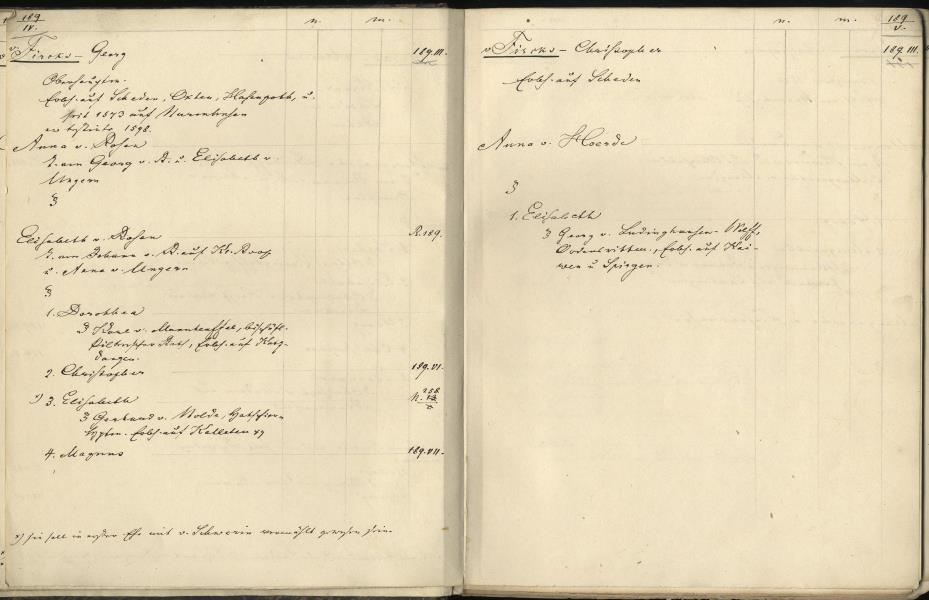 189
IV.
n.
m.
v Fircks – Georg 189.III.
Oberhauptm.
Erbh. auf Scheden, Okten, Hasenpoth, u.
seit 1573 auf Nurmhusen
er testirte 1598.
Anna v. Rosen
T. von Georg v. R. u. Elisabeth v.
Ungern
Elisabeth v. Rosen R.189.
T. von Johann v. R. auf Kl. Roop
u. Anna v. Ungern
1. Dorothea
Karl v. Manteuffel, bischöfl.
Piltenscher Rath, Erbh. auf Katz-
dangen.
2. Christopher 189.VI.
3. Elisabeth N. 258.
Gerhard v. Nolde,
Erbh. auf Kalleten
4. Magnus 189.VII.
sie soll in erster Ehe mit v. Schwerin vermählt gewesen sein
n.
m.
189
V.
v Fircks – Christopher 189.III.
Erbh. auf Scheden
Anna v. Hoerde
1. Elisabeth
Georg v. Ludinghausen-Wolff,
Ordensritter, Erbh. auf Kai-
wen u Spirgen.